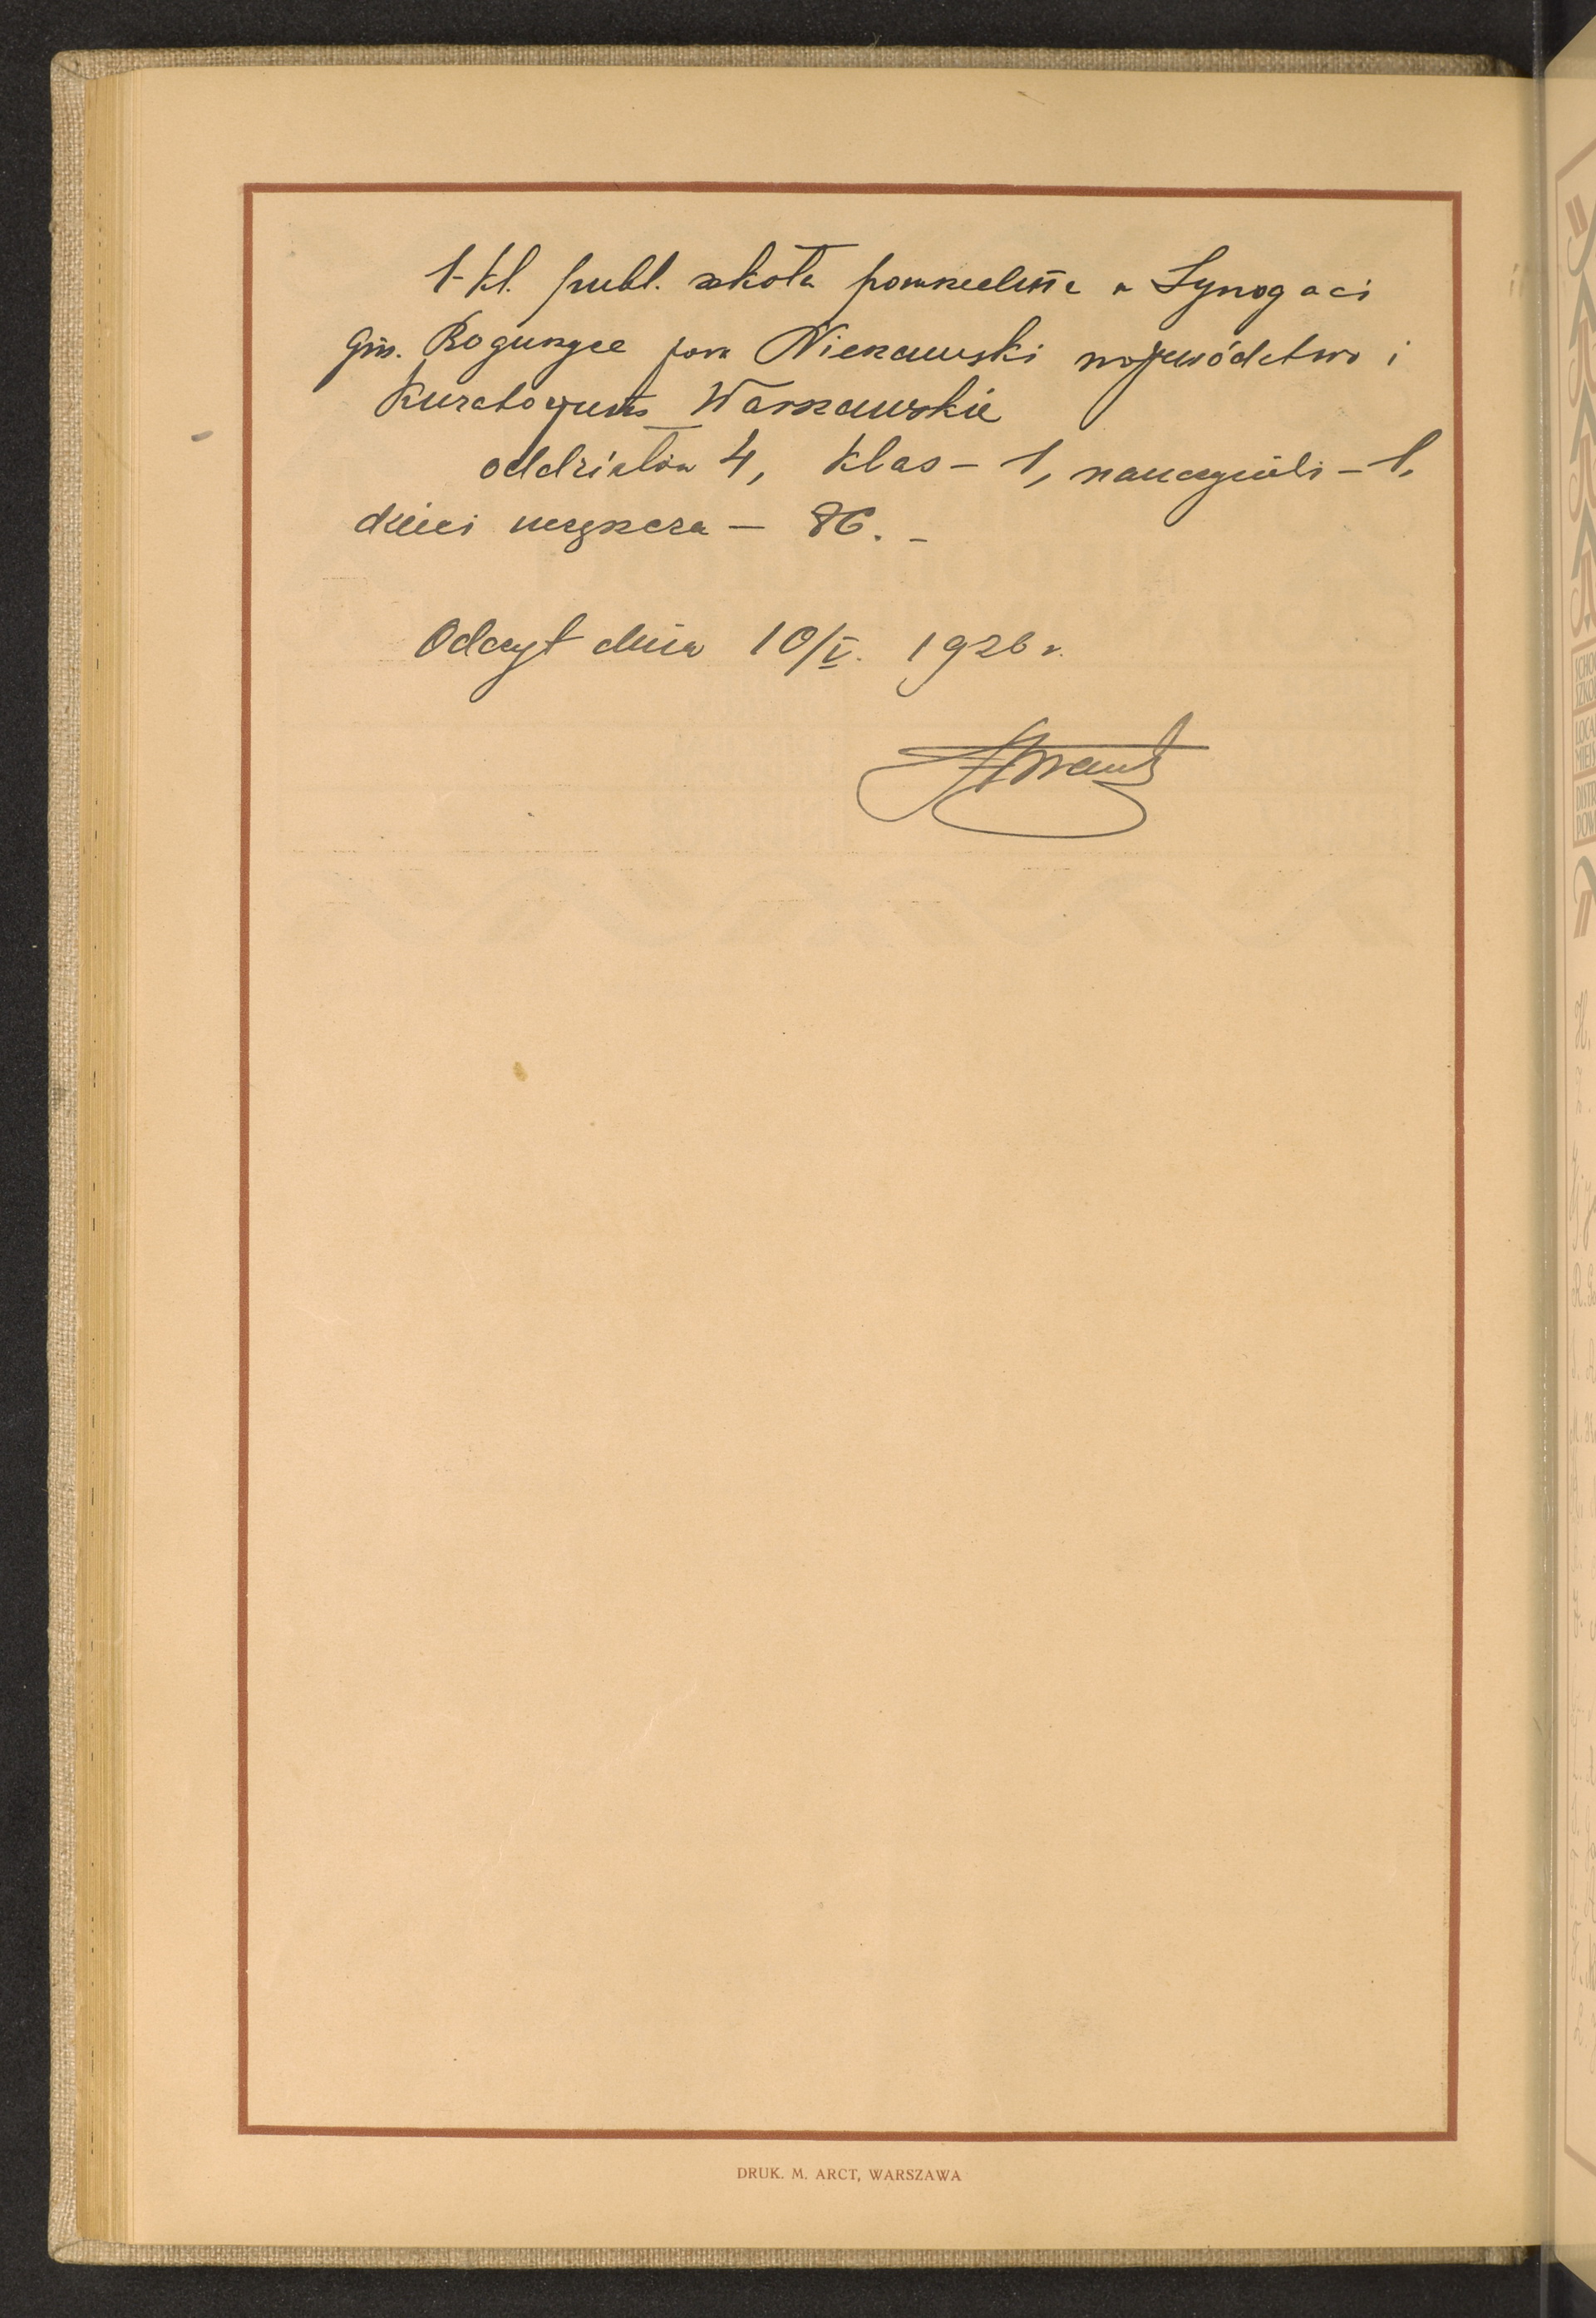 1-kl. publ. szkoła powszechna w Synogaci
gm. Boguszyce pow Nieszawski województwo i
Kuratorjum Warszawskie
oddziałów 4, klas – 1, nauczycieli – 1,
dzieci uczęszcza – 86. –
Odczyt dnia 10/V. 1926 r.
DRUK. M. ARCT, WARSZAWA